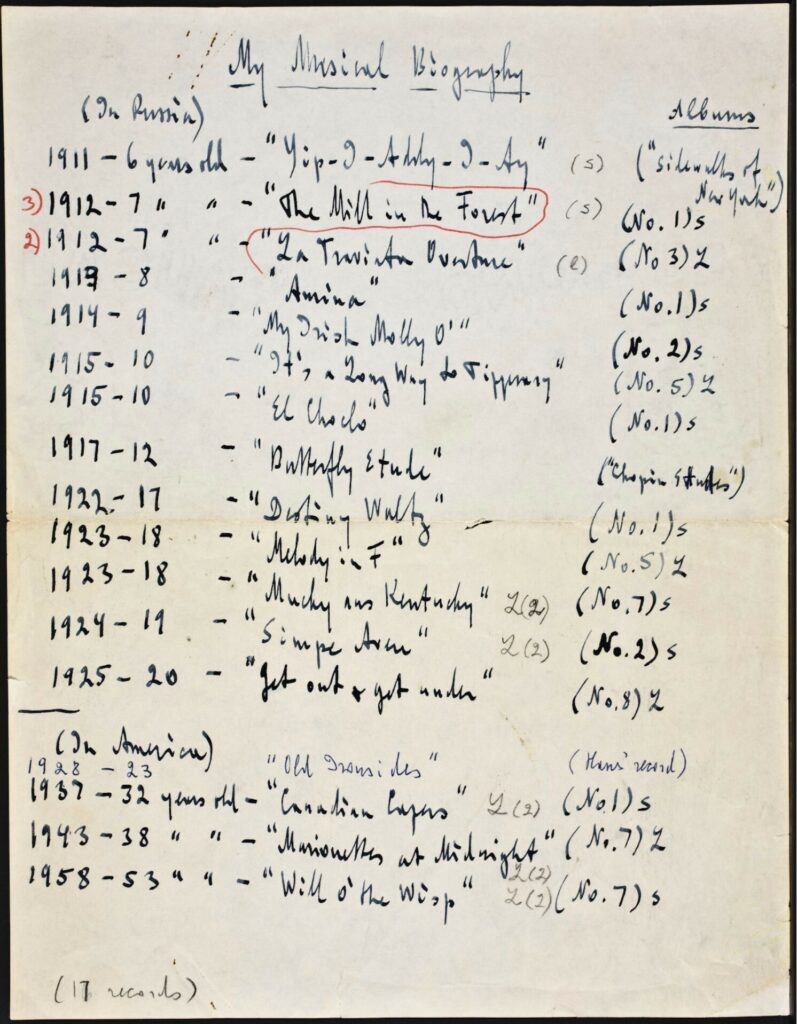 My Musical Biography
(In Russia) Albums
1911 - 6 years old - "Yip-I-Addy-I-Ay" (s) ("Sidewalks of New York")
3) 1912 - 7 " " - "The Mill in the Forest" (s) (No. 1) s
2) 1912 - 7 " " - "La Traviata Overture" (l) (No 3) L
1913 - 8 - "Amina" (No. 1) s
1914 - 9 - "My Irish Molly O'" (No. 2) s
1915 - 10 - "It's a Long Way to Tipperary" (No. 5) L
1915 - 10 - "El Choclo" (No. 1) s
1917 - 12 - "Butterfly Etude" ("Chopin Etudes")
1922 - 17 - "Destiny Waltz" (No. 1) s
1923 - 18 - "Melody in F" (No. 5) L
1923 - 18 - " Kentucky" L(2) (No. 7) s
1924 - 19 - " " L(2) (No. 2) s
1925 - 20 - "Get out & get under" (No. 8) L
(In America)
1928 - 23 "Old Ironsides" ( record)
1937 - 32 years old - "Canadian Capers" L(2) (No. 1) s
1943 - 38 " " - "Marionettes at Midnight" L(2) (No. 7) L
1958 - 53 " " - "Will o' the Wisp" L(2) (No. 7) s
(17 records)